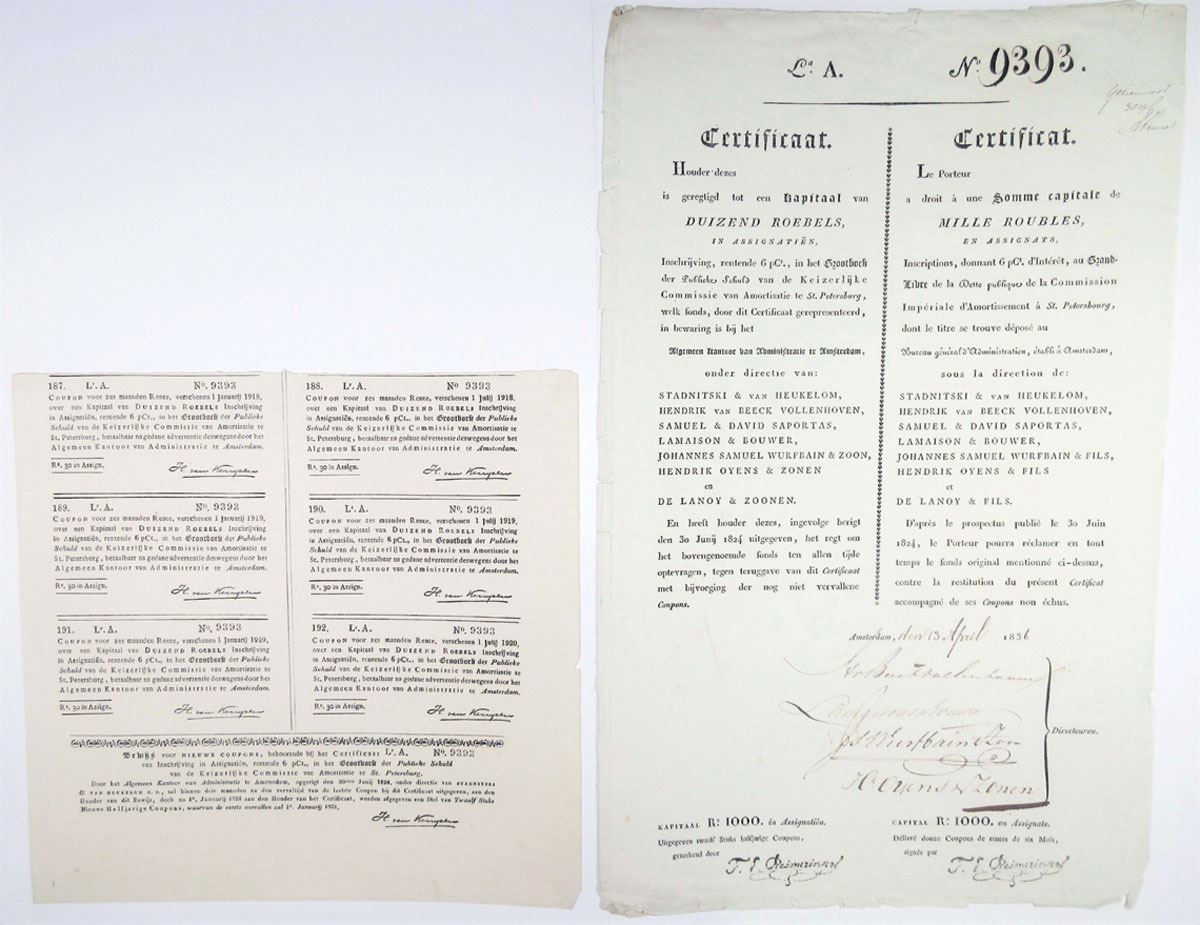 187. Lʳ. A. Nº. 9393
COUPON voor zes maanden Rente, verschenen 1 Januarij 1918,
over een Kapitaal van DUIZEND ROEBELS Inschrijving
in Assignatiën, rentende 6 pCt., in het Grootboek der Publieke
Schuld van de Keizerlijke Commissie van Amortisatie te
St. Petersburg, betaalbaar na gedane advertentie deswegens door het
Algemeen Kantoor van Administratie te Amsterdam.
Rˢ. 30 in Assign.
H. van Kempen
188. Lʳ. A. Nº 9393
COUPON voor zes maanden Rente, verschenen 1 Julij 1918,
over een Kapitaal van DUIZEND ROEBELS Inschrijving
in Assignatiën, rentende 6 pCt., in het Grootboek der Publieke
Schuld van de Keizerlijke Commissie van Amortisatie te
St. Petersburg, betaalbaar na gedane advertentie deswegens door het
Algemeen Kantoor van Administratie te Amsterdam.
Rˢ. 30 in Assign.
H. van Kempen
189. Lʳ. A. Nº. 9393
COUPON voor zes maanden Rente, verschenen 1 Januarij 1919,
over een Kapitaal van DUIZEND ROEBELS Inschrijving
in Assignatiën, rentende 6 pCt., in het Grootboek der Publieke
Schuld van de Keizerlijke Commissie van Amortisatie te
St. Petersburg, betaalbaar na gedane advertentie deswegens door het
Algemeen Kantoor van Administratie te Amsterdam.
Rˢ. 30 in Assign.
H. van Kempen
190. Lʳ. A. Nº. 9393
COUPON voor zes maanden Rente, verschenen 1 Julij 1919,
over een Kapitaal van DUIZEND ROEBELS Inschrijving
in Assignatiën, rentende 6 pCt., in het Grootboek der Publieke
Schuld van de Keizerlijke Commissie van Amortisatie te
St. Petersburg, betaalbaar na gedane advertentie deswegens door het
Algemeen Kantoor van Administratie te Amsterdam.
Rˢ. 30 in Assign.
H. van Kempen
191. Lʳ. A. Nº. 9393
COUPON voor zes maanden Rente, verschenen 1 Januarij 1920,
over een Kapitaal van DUIZEND ROEBELS Inschrijving
in Assignatiën, rentende 6 pCt., in het Grootboek der Publieke
Schuld van de Keizerlijke Commissie van Amortisatie te
St. Petersburg, betaalbaar na gedane advertentie deswegens door het
Algemeen Kantoor van Administratie te Amsterdam.
Rˢ. 30 in Assign.
H. van Kempen
192. Lʳ. A. Nº. 9393
COUPON voor zes maanden Rente, verschenen 1 Julij 1920,
over een Kapitaal van DUIZEND ROEBELS Inschrijving
in Assignatiën, rentende 6 pCt., in het Grootboek der Publieke
Schuld van de Keizerlijke Commissie van Amortisatie te
St. Petersburg, betaalbaar na gedane advertentie deswegens door het
Algemeen Kantoor van Administratie te Amsterdam.
Rˢ. 30 in Assign.
H. van Kempen
Bewijs voor NIEUWE COUPONS, behoorende bij het Certificaat Lʳ. A. Nº 9393
van Inschrijving in Assignatiën, rentende 6 pCt., in het Grootboek der Publieke Schuld
van de Keizerlijke Commissie van Amortisatie te St. Petersburg.
Door het Algemeen Kantoor van Administratie te Amsterdam, opgerigt den 30sten Junij 1824, onder directie van STADNITSKI
& VAN HEUKELOM c. s., zal binnen drie maanden na den vervaltijd van de laatste Coupon bij dit Certificaat uitgegeven, aan den
Houder van dit Bewijs, doch na 1º. Januarij 1921 aan den Houder van het Certificaat, worden afgegeven een Stel van Twaalf Stuks
Nieuwe Halfjarige Coupons, waarvan de eerste vervallen zal 1º. Januarij 1921.
H. van Kempen
Lᵃ A. Nº 9393.
Certificaat.
Houder dezes
is geregtigd tot een Kapitaal van
DUIZEND ROEBELS,
IN ASSIGNATIËN,
Inschrijving, rentende 6 pCᵗ., in het Grootboek
der Publieke Schuld van de Keizerlijke
Commissie van Amortisatie te St. Petersburg,
welk fonds, door dit Certificaat gerepresenteerd,
in bewaring is bij het
Algemeen Kantoor van Administratie te Amsterdam,
onder directie van:
STADNITSKI & VAN HEUKELOM,
HENDRIK VAN BEECK VOLLENHOVEN,
SAMUEL & DAVID SAPORTAS,
LAMAISON & BOUWER,
JOHANNES SAMUEL WURFBAIN & ZOON,
HENDRIK OYENS & ZONEN
en
DE LANOY & ZOONEN.
En heeft houder dezes, ingevolge berigt
den 30 Junij 1824 uitgegeven, het regt om
het bovengenoemde fonds ten allen tijde
optevragen, tegen teruggave van dit Certificaat
met bijvoeging der nog niet vervallene
Coupons.
Certificat.
Le Porteur
a droit à une Somme capitale de
MILLE ROUBLES,
EN ASSIGNATS,
Inscriptions, donnant 6 pCᵗ. d'Intérêt, au Grand-
Libre de la Dette publique de la Commission
Impériale d'Amortissement à St. Petersbourg,
dont le titre se trouve déposé au
Bureau général d'Administration, établi à Amsterdam,
sous la direction de:
STADNITSKI & VAN HEUKELOM,
HENDRIK VAN BEECK VOLLENHOVEN,
SAMUEL & DAVID SAPORTAS,
LAMAISON & BOUWER,
JOHANNES SAMUEL WURFBAIN & FILS,
HENDRIK OYENS & FILS
et
DE LANOY & FILS.
D'après le prospectus publié le 30 Juin
1824, le Porteur pourra réclamer en tout
temps le fonds original mentionné ci-dessus,
contre la restitution du présent Certificat
accompagné de ses Coupons non échus.
Amsterdam, den 13 April 1836
Lamaison & Bouwer
J S Wurfbain & Zoon
H. Oyens & Zonen
Directeuren.
KAPITAAL Rˢ. 1000. in Assignatiën.
Uitgegeven twaalf Stuks halfjarige Coupons,
geteekend door
CAPITAL Rˢ. 1000. en Assignats.
Délivré douze Coupons de rentes de six Mois,
signés par